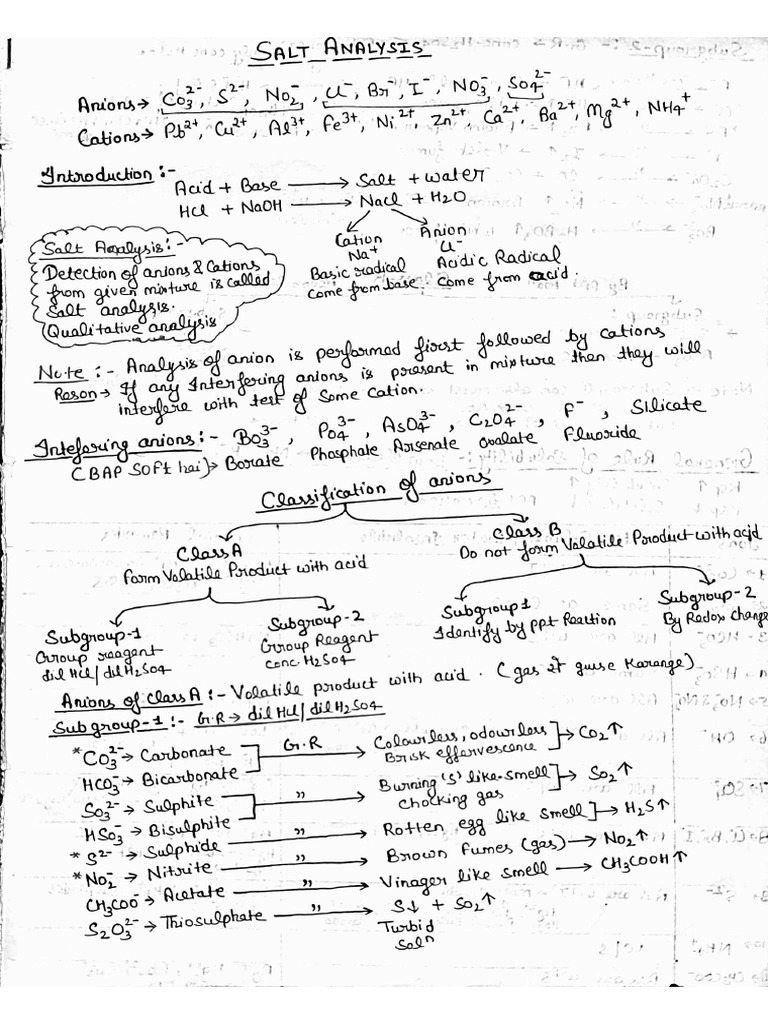 SALT ANALYSIS
Anions→ CO3^2-, S^2-, NO2^-, Cl^-, Br^-, I^-, NO3^-, SO4^2-
Cations→ Pb^2+, Cu^2+, Al^3+, Fe^3+, Ni^2+, Zn^2+, Ca^2+, Ba^2+, Mg^2+, NH4^+
Introduction:-
Acid + Base ⟶ Salt + water
HCl + NaOH ⟶ NaCl + H2O
Cation Anion
Na^+ Cl^-
Basic radical Acidic Radical
Come from base. Come from acid.
Salt Analysis:-
Detection of anions & Cations
from given mixture is called
Salt analysis.
Qualitative analysis
Note:- Analysis of anion is performed first followed by cations
Reson→ If any Interfering anions is present in mixture then they will
interfere with test of some Cation.
Intefering anions:- BO3^3-, PO4^3-, AsO4^3-, C2O4^2-, F^-, Silicate
(BAP SOFt hai)→ Borate Phosphate Arsenate Oxalate Fluoride
Classification of anions
Class A Class B
Form Volatile Product with acid Do not form Volatile Product with acid
Subgroup-1 Subgroup-2 Subgroup 1 Subgroup-2
Group reagent Group Reagent Identify by ppt Reaction By Redox Change
dil HCl/dil H2SO4 conc. H2SO4
Anions of class A:- Volatile product with acid. (gas et guise Karange)
Subgroup-1:- G.R→ dil HCl/dil H2SO4
*CO3^2-→ Carbonate G.R Colourless, odourless → CO2↑
HCO3^-→ Bicarbonate Brisk effervescence
SO3^2-→ Sulphite " Burning 'S' like smell → SO2↑
HSO3^-→ Bisulphite Chocking gas
*S^2-→ Sulphide " Rotten egg like smell → H2S↑
*NO2^-→ Nitrite " Brown fumes (gas) → NO2↑
CH3COO^-→ Acetate " Vinager like smell → CH3COOH↑
S2O3^2-→ Thiosulphate " S↓ + SO2↑
Turbid
Solⁿ